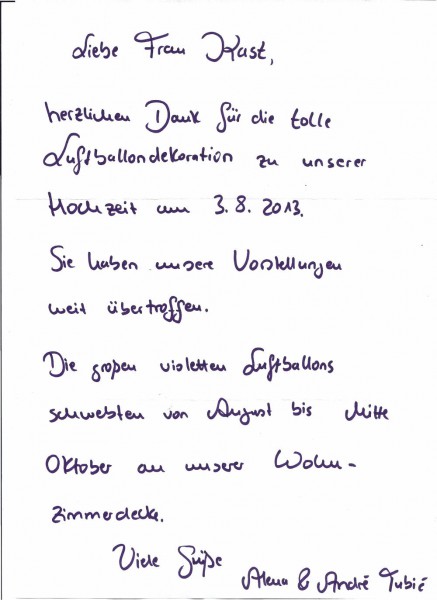 Liebe Frau Kast,
herzlichen Dank für die tolle
Luftballondekoration zu unserer
Hochzeit am 3.8.2013.
Sie haben unsere Vorstellungen
weit übertroffen.
Die großen violetten Luftballons
schwebten von August bis Mitte
Oktober an unserer Wohn-
zimmerdecke.
Viele Grüße
Alena & André Tubić